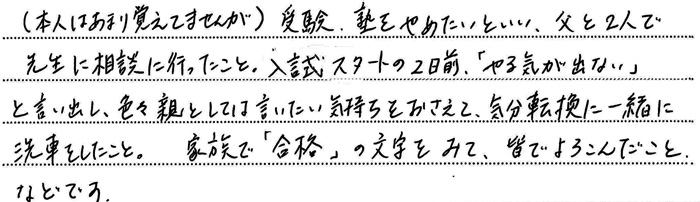 (本人はあまり覚えてませんが) 受験、塾をやめたいといい、父と2人で
先生に相談に行ったこと。入試スタートの2日前、「やる気が出ない」
と言い出し、色々親としては言いたい気持ちをおさえて、気分転換に一緒に
洗車をしたこと。 家族で「合格」の文字をみて、皆でよろこんだこと、
などです。